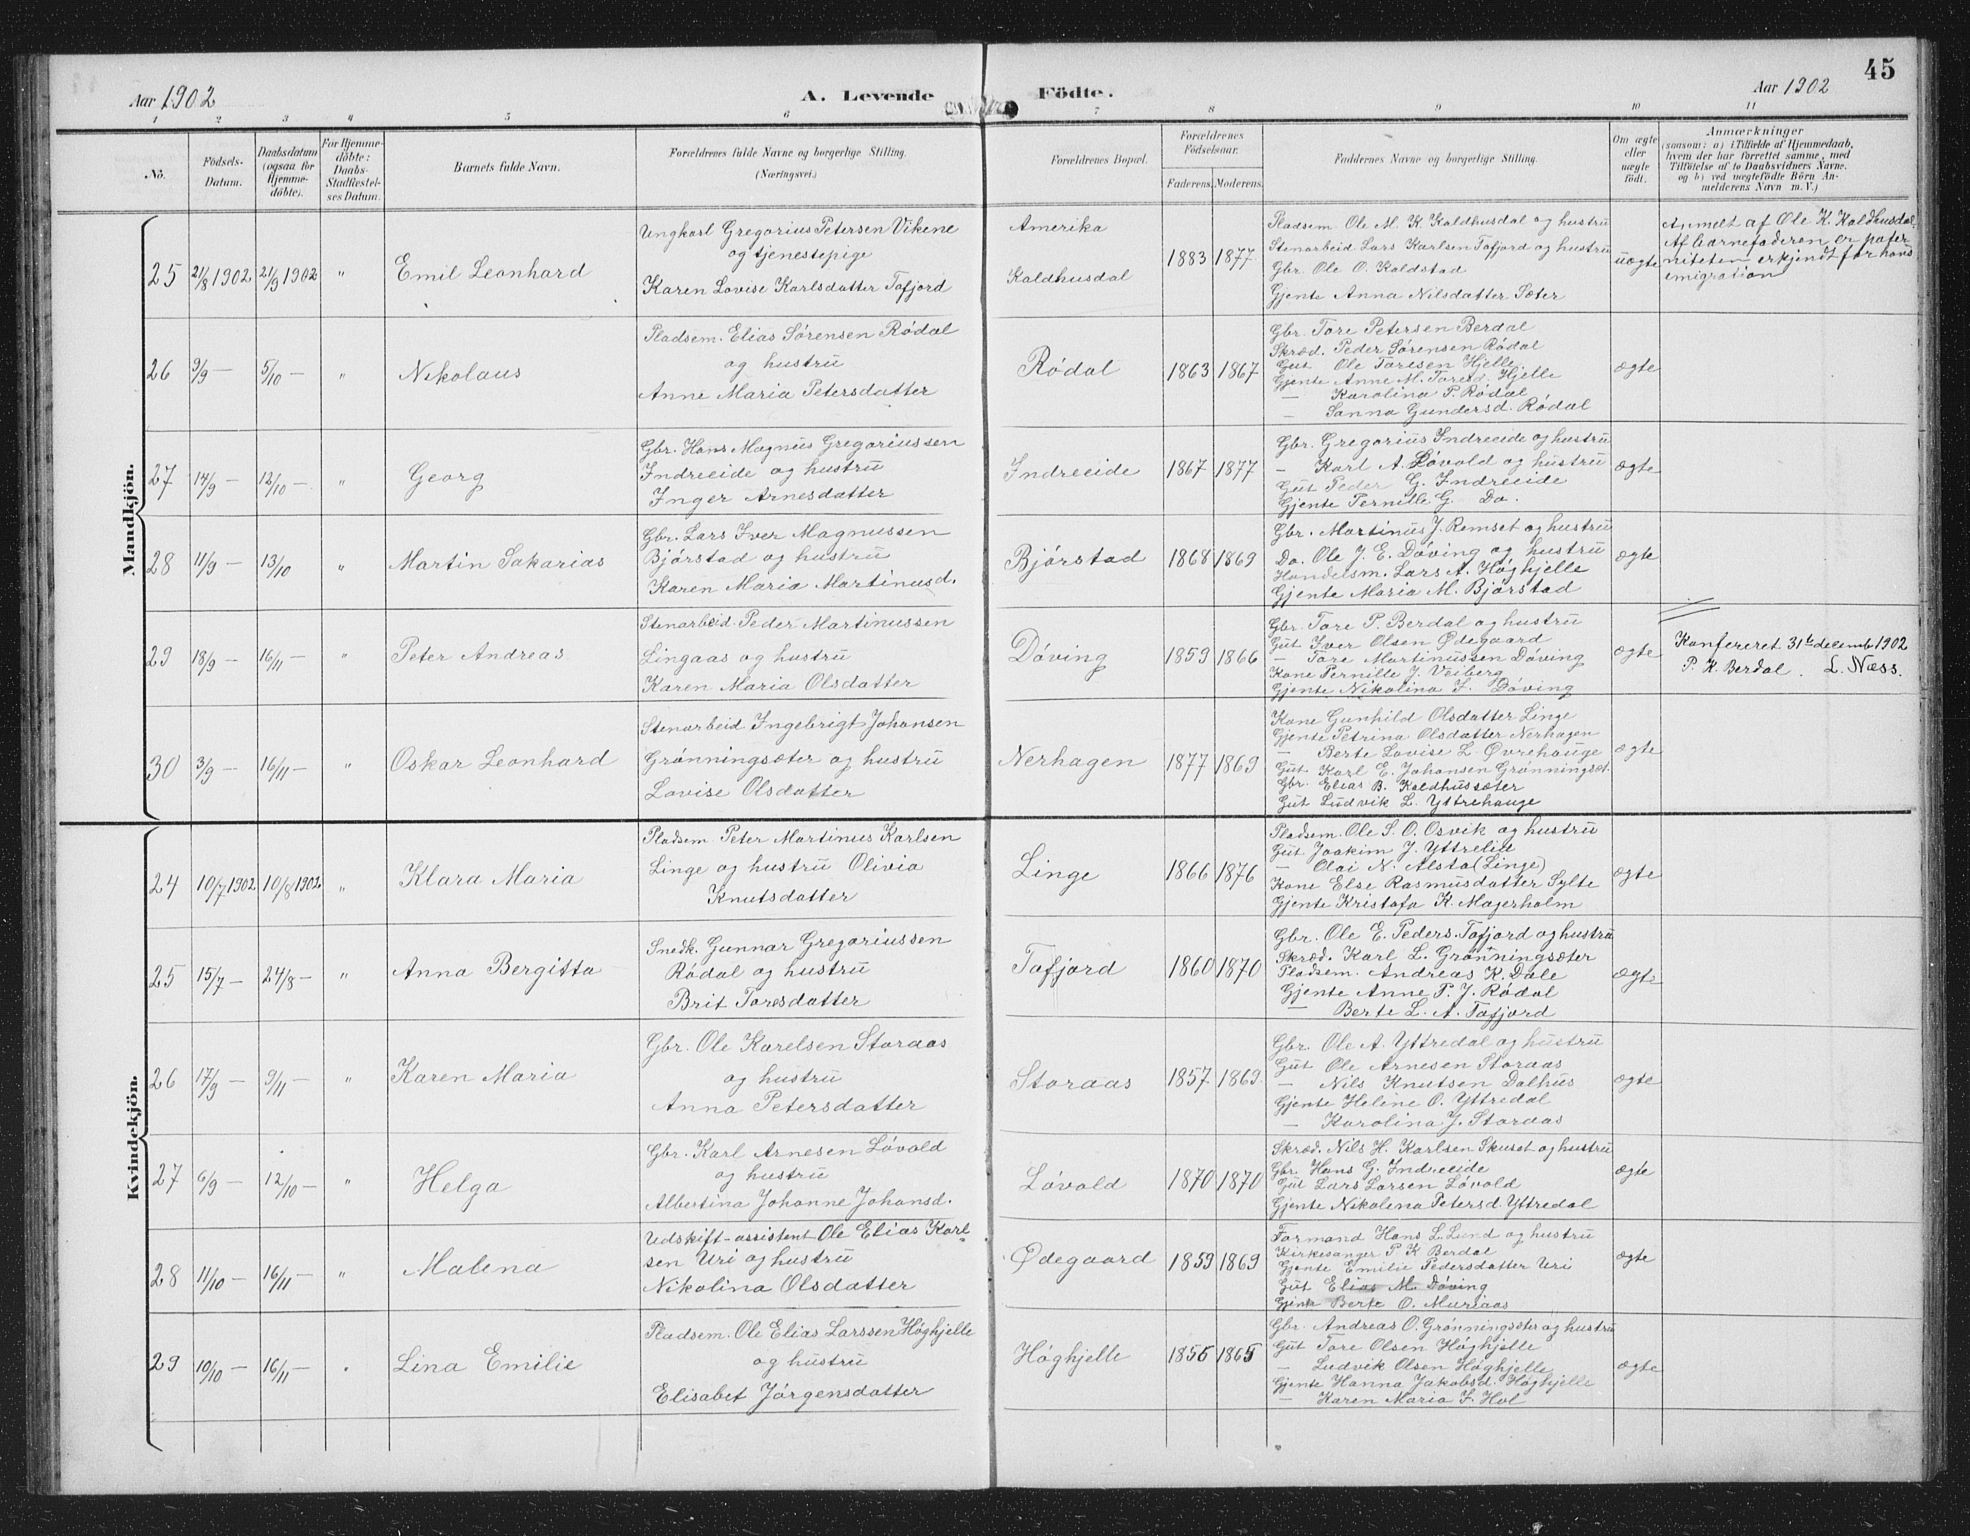 45
Aar 1902
A. Levende
Födte.
Aar 1902
1 2 3 4 5 6 7 8 9 10 11
No.
Födsels-
Datum.
Daabsdatum
(ogsaa for
Hjemme-
döbte).
For Hjemme-
döbte:
Daabs-
Stadfæstel-
ses Datum.
Barnets fulde Navn.
Forældrenes fulde Navne og borgerlige Stilling.
(Næringsvei.)
Forældrenes Bopæl.
Forældrenes
Födselsaar.
Faderens. Moderens.
Faddernes Navne og borgerlige Stilling.
Om ægte
eller
uægte
födt.
Anmærkninger
(saasom: a) i Tilfælde af Hjemmedaab,
hvem der har forrettet samme, med
Tilföielse af to Daabsvidners Navne,
og b) ved uægtefödte Börn An-
melderens Navn m. V.)
Mandkjön.
25 21/8 1902 21/9 1902 " Emil Leonhard
Ungkarl Gregorius Petersen Vikene
og tjenestepige
Karen Lovise Karlsdatter Tafjord
Amerika
Kaldhusdal
1883 1877
Pladsem. Ole M. K. Kaldhusdal og hustru
Stenarbeid Lars Karlsen Tafjord og hustru
Gbr. Ole O. Kaldstad
Gjente Anna Nilsdatter Sæter
uægte
Anmelt af Ole K. Kaldhusdal.
Af barnefaderen er pater-
niteten erkjendt før hans
emigration
26 9/9 — 5/10 — " Nikolaus
Pladsem. Elias Sørensen Rødal
og hustru
Anne Maria Petersdatter
Rødal
1863 1867
Gbr. Tore Petersen Berdal
Skræd. Peder Sørensen Rødal
Gut Ole Toresen Hjelle
Gjente Anne M. Toresd. Hjelle
— Karolina P. Rødal
— Sanna Gundersd. Rødal
ægte
27 14/9 — 12/10 — " Georg
Gbr. Hans Magnus Gregoriussen
Indreeide og hustru
Inger Arnesdatter
Indreeide
1867 1877
Gbr. Gregorius Indreeide og hustru
— Karl A. Løvold og hustru
Gut Peder G. Indreeide
Gjente Pernille G. Do.
ægte
28 11/9 — 13/10 " Martin Sakarias
Gbr. Lars Iver Magnussen
Bjørstad og hustru
Karen Maria Martinusd.
Bjørstad
1868 1869
Gbr. Martinus J. Remset og hustru
Do. Ole J. E. Døving og hustru
Handelsm. Lars A. Høghjelle
Gjente Maria M. Bjørstad
ægte
29 18/9 — 16/11 — " Peter Andreas
Stenarbeid. Peder Martinussen
Lingaas og hustru
Karen Maria Olsdatter
Døving
1859 1866
Gbr. Tore P. Berdal og hustru
Gut Iver Olsen Ødegaard
— Tore Martinussen Døving
Kone Pernille J. Veiberg
Gjente Nikolina I. Døving
ægte
Konfereret 31te decemb 1902
P. K. Berdal. L. Næss.
30 3/9 — 16/11 — " Oskar Leonhard
Stenarbeid Ingebrigt Johansen
Grønningsæter og hustru
Lovise Olsdatter
Nerhagen
1877 1869
Kone Gunhild Olsdatter Linge
Gjente Petrina Olsdatter Nerhagen
— Berte Lovise L. Øvrehauge
Gut Karl E. Johansen Grønningsæt.
Gbr. Elias B. Kaldhussæter
Gut Ludvik L. Yttrehauge
ægte
Kvindekjön.
24 10/7 1902 10/8 1902 " Klara Maria
Pladsem Peter Martinus Karlsen
Linge og hustru Olivia
Knutsdatter
Linge
1866 1876
Pladsem. Ole S. O. Osvik og hustru
Gut Joakim J. Yttrelie
— Olai N. Alsta (Linge)
Kone Else Rasmusdatter Sylte
Gjente Kristofa K. Magerholm
ægte
25 15/7 — 24/8 — " Anna Bergitta
Snedk. Gunnar Gregoriussen
Rødal og hustru
Brit Toresdatter
Tafjord
1860 1870
Gbr. Ole E. Peders. Tafjord og hustru
Skræd. Karl L. Grønningsæter
Pladsem. Andreas K. Dale
Gjente Anne P. J. Rødal
— Berte L. A. Tafjord
ægte
26 17/9 — 9/11 — " Karen Maria
Gbr. Ole Karelsen Storaas
og hustru
Anna Petersdatter
Storaas
1857 1869
Gbr. Ole A. Yttredal og hustru
Gut Ole Arnesen Storaas
— Nils Knutsen Dalhus
Gjente Heline O. Yttredal
— Karolina J. Storaas
ægte
27 6/9 — 12/10 — " Helga
Gbr. Karl Arnesen Løvold
og hustru
Albertina Johanne Johansd.
Løvold
1870 1870
Skræd. Nils H. Karlsen Skuset og hustru
Gbr. Hans G. Indreeide
Gut Lars Larsen Løvold
Gjente Nikolina Petersd. Yttredal
ægte
28 11/10 — 16/11 — " Malena
Udskift-assistent Ole Elias Karl-
sen Uri og hustru
Nikolina Olsdatter
Ødegaard
1859 1869
Formand Hans L. Lund og hustru
Kirkesanger P. K Berdal
Gjente Emilie Pedersdatter Uri
Gut Elias M. Døving
Gjente Berte O. Muriaas
ægte
29 10/10 — 16/11 — " Lina Emilie
Pladsem. Ole Elias Larssen Høghjelle
og hustru
Elisabet Jørgensdatter
Høghjelle
1865
Gbr. Andreas O. Grønningsæter og hustru
Gut Tore Olsen Høghjelle
— Ludvik Olsen Høghjelle
Gjente Hanna Jakobsd. Høghjelle
— Karen Maria I. Hol
ægte